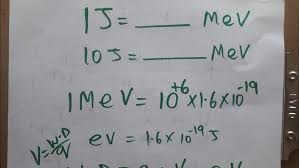 1 J = ______ MeV
10 J = ______ MeV
1 MeV = 10⁺⁶ × 1.6 × 10⁻¹⁹
V = W.D/q eV = 1.6 × 10⁻¹⁹ J